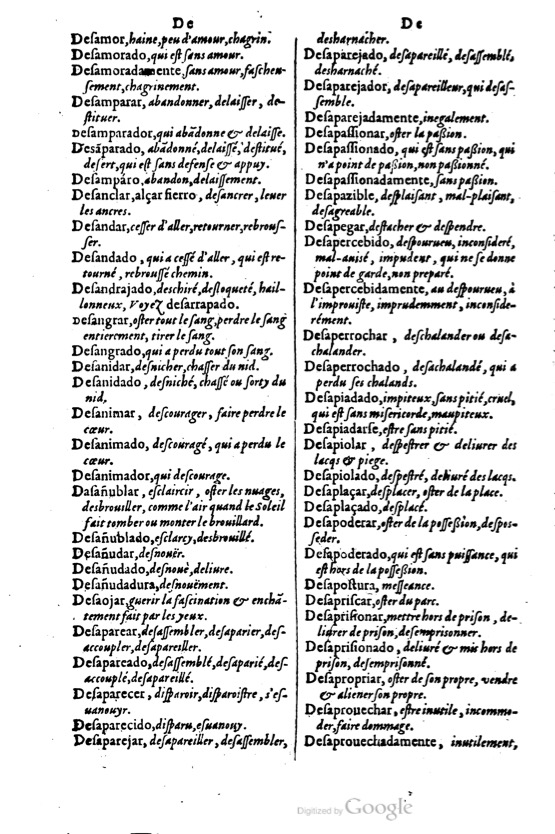 De
Desamor, haine, peu d'amour, chagrin.
Desamorado, qui est sans amour.
Desamoradamente, sans amour, faschen-
sement, chagrinement.
Desamparar, abandonner, delaisser, de-
stituer.
Desamparador, qui abãdonne & delaisse.
Desãparado, abãdonné, delaissé, destitué,
desert, qui est sans defense & appuy.
Desampáro, abandon, delaissement.
Desanclar, alçar fierro, desancrer, leuer
les ancres.
Desandar, cesser d'aller, retourner, rebrous-
ser.
Desandado, qui a cessé d'aller, qui est re-
tourné, rebroussé chemin.
Desandrajado, deschiré, desloqueté, hail-
lonneux, Voyez desarrapado.
Desangrar, oster tout le sang, perdre le sang
entierement, tirer le sang.
Desangrado, qui a perdu tout son sang.
Desanidar, desnicher, chasser du nid.
Desanidado, desniché, chassé ou sorty du
nid,
Desanimar, descourager, faire perdre le
cœur.
Desanimado, descouragé, qui a perdu le
cœur.
Desanimador, qui descourage.
Dasañublar, esclaircir, oster les nuages,
desbrouiller, comme l'air quand le Soleil
fait tomber ou monter le brouillard.
Desañublado, esclarcy, desbrouillé.
Desañudar, desnouër.
Desañudado, desnoué, deliure.
Desañudadura, desnouëment.
Desaojar, guerir la fascination & enchã-
tement fait par les yeux.
Desaparear, desassembler, desaparier, des-
accoupler, desapareiller.
Desapareado, desassemblé, desaparié, des-
accouplé, desapareillé.
Desaparecer, disparoir, disparoistre, s'es-
uanouyr.
Desaparecido, disparu, esuanouy.
Desaparejar, desapareiller, desassembler,
De
desharnacher.
Desaparejado, desapareillé, desassemblé,
desharnaché.
Desaparejador, desapareilleur, qui desas-
semble.
Desaparejadamente, inegalement.
Desapassionar, oster la passion.
Desapassionado, qui est sans passion, qui
n'a point de passion, non passionné.
Desapassionadamente, sans passion.
Desapazible, desplaisant, mal-plaisant,
desagreable.
Desapegar, destacher & despendre.
Desapercebido, despourueu, inconsideré,
mal-auisé, impudent, qui ne se donne
point de garde, non preparé.
Desapercebidamente, au despourueu, à
l'improuiste, imprudemment, inconside-
rément.
Desaperrochar, deschalander ou desa-
chalander.
Desaperrochado, desachalandé, qui a
perdu ses chalands.
Desapiadado, impiteux, sans pitié, cruel,
qui est sans misericorde, maupiteux.
Desapiadarse, estre sans pitié.
Desapiolar, despestrer & deliurer des
lacqs & piege.
Desapiolado, despestré, deliuré des lacqs.
Desaplaçar, desplacer, oster de la place.
Desaplaçado, desplacé.
Desapoderar, oster de la possession, despos-
seder.
Desapoderado, qui est sans puissance, qui
est hors de la possession.
Desapostura, messeance.
Desapriscar, oster du parc.
Desaprisionar, mettre hors de prison, de-
liurer de prison, desemprisonner.
Desaprisionado, deliuré & mis hors de
prison, desemprisonné.
Desapropriar, oster de son propre, vendre
& aliener son propre.
Desaprouechar, estre inutile, incommo-
der, faire dommage.
Desaprouechadamente, inutilement,
Digitized by Google